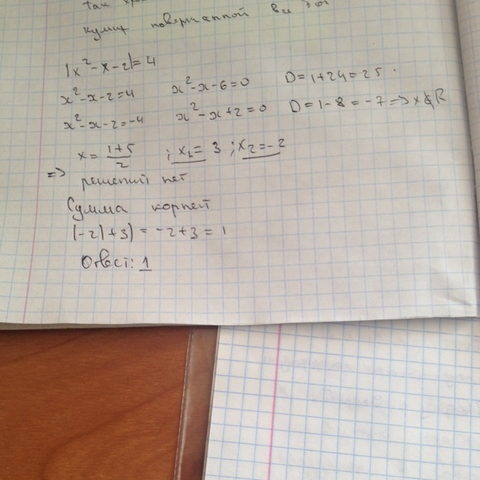 так
|x²-x-2|=4
x²-x-2=4 x²-x-6=0 D=1+24=25
x²-x-2=-4 x²-x+2=0 D=1-8=-7=>x∉R
x=(1+5)/2 ; x₁=3 ; x₂=-2
=> решений нет
Сумма корней
(-2)+3)=-2+3=1
Ответ: 1